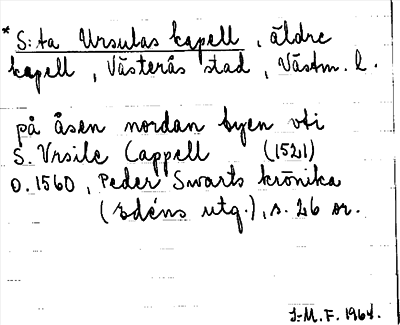 * S:ta Ursulas kapell, äldre
kapell, Västerås stad, Västm. l.
på åsen nordan byen vti
S. Vrsile Cappell (1521)
o. 1560, Peder Swarts krönika
(Edéns utg.), s. 26 or.
J-M. F. 1964.